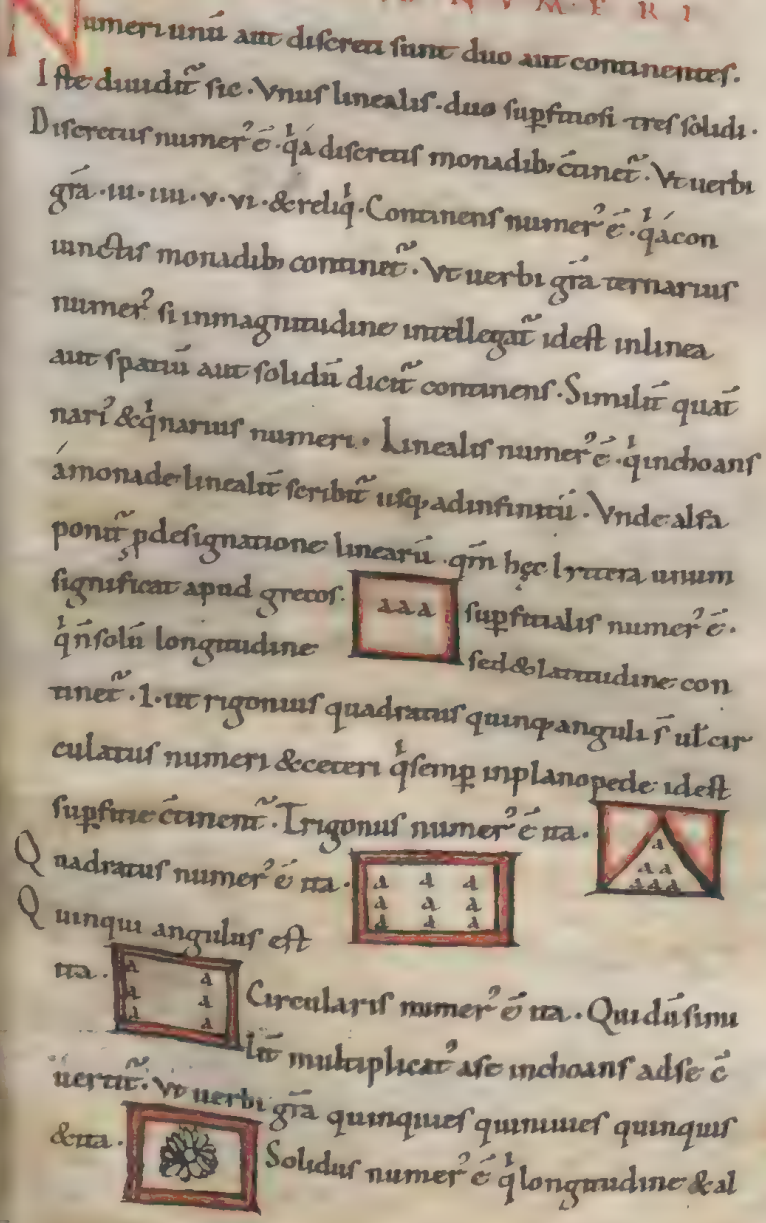 NUMERI
Numeri unū aut discreti sunt duo aut continentes.
Iste diuidit̃ sic. Vnus linealis. duo suꝑfitiosi tres solidi.
Discretus numer᾽ ē. qͥ a discretis monadib; c̄tinet̃. Vt uerbi
grã. iii. iiii. v. vi. & reliqͥ. Continens numer᾽ ē. qͥ a con
iunctis monadib; continet̃. Vt uerbi grã ternarius
numer᾽ si in magnitudine intellegat̃ id est in linea
aut spatiū aut solidū dicit̃ continens. Similit̃ quat̃
nari᾽ & qͥnarius numeri. Linealis numer᾽ ē. qͥ inchoans
á monade linealit̃ scribit̃ usq; ad infinitū. Vnde alfa
ponit̃ ꝑ designatione linearū. qm̄ hęc lyttera unum
significat apud grecos.
a a a
suꝑfitialis numer᾽ ē.
qͥ n̄ solū longitudine
sed & latitudine con
tinet̃. I. ut rigonius quadratus quinq; anguli s̄ ul̄ cir
culatus numeri & ceteri qͥ semꝑ in plano pede id est
suꝑfitie c̄tinent̃. Trigonus numer᾽ ē ita.
a
a a
a a a
Quadratus numer᾽ ē ita.
a a a
a a a
a a a
Quinqui angulus est
ita.
a a
a a
a a
Circularis numer᾽ ē ita. Qui dū simu
lit̃ multiplicat᾽ a se inchoans ad se c̄
uertit̃. Vt uerbi grã quinquies quiniuies quinquis
& ita.
Solidus numer᾽ ē qͥ longitudine & al